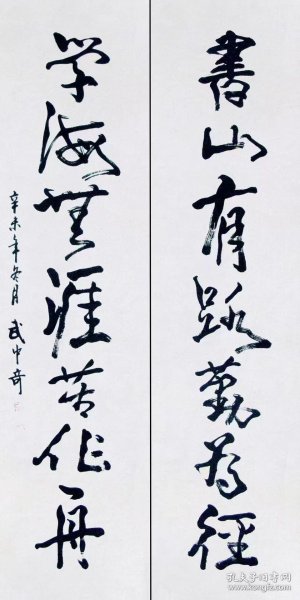 書山有路勤为徑
学海無涯苦作舟
辛未年冬月 武中奇
孔夫子旧书网